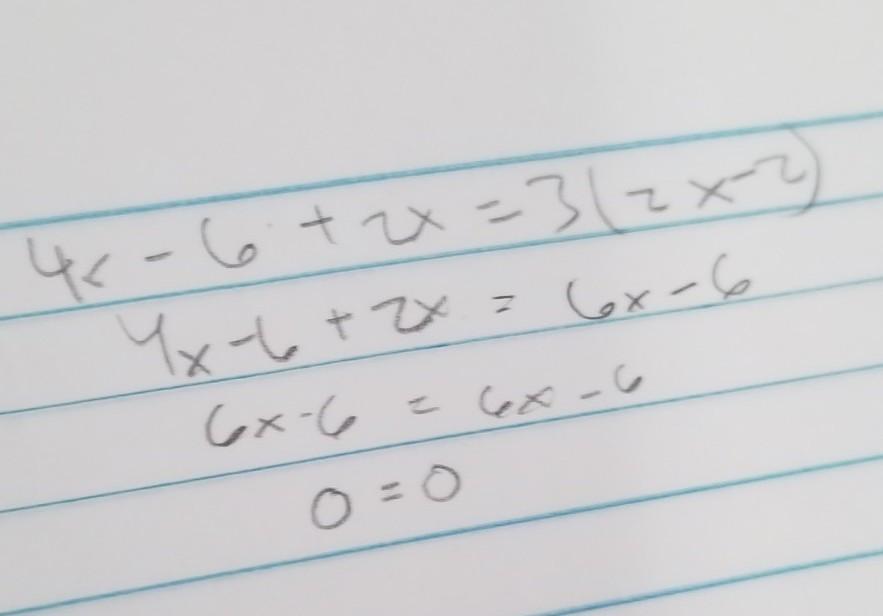 4x - 6 + 2x = 3(2x-2)
4x-6 + 2x = 6x - 6
6x-6 = 6x - 6
0 = 0